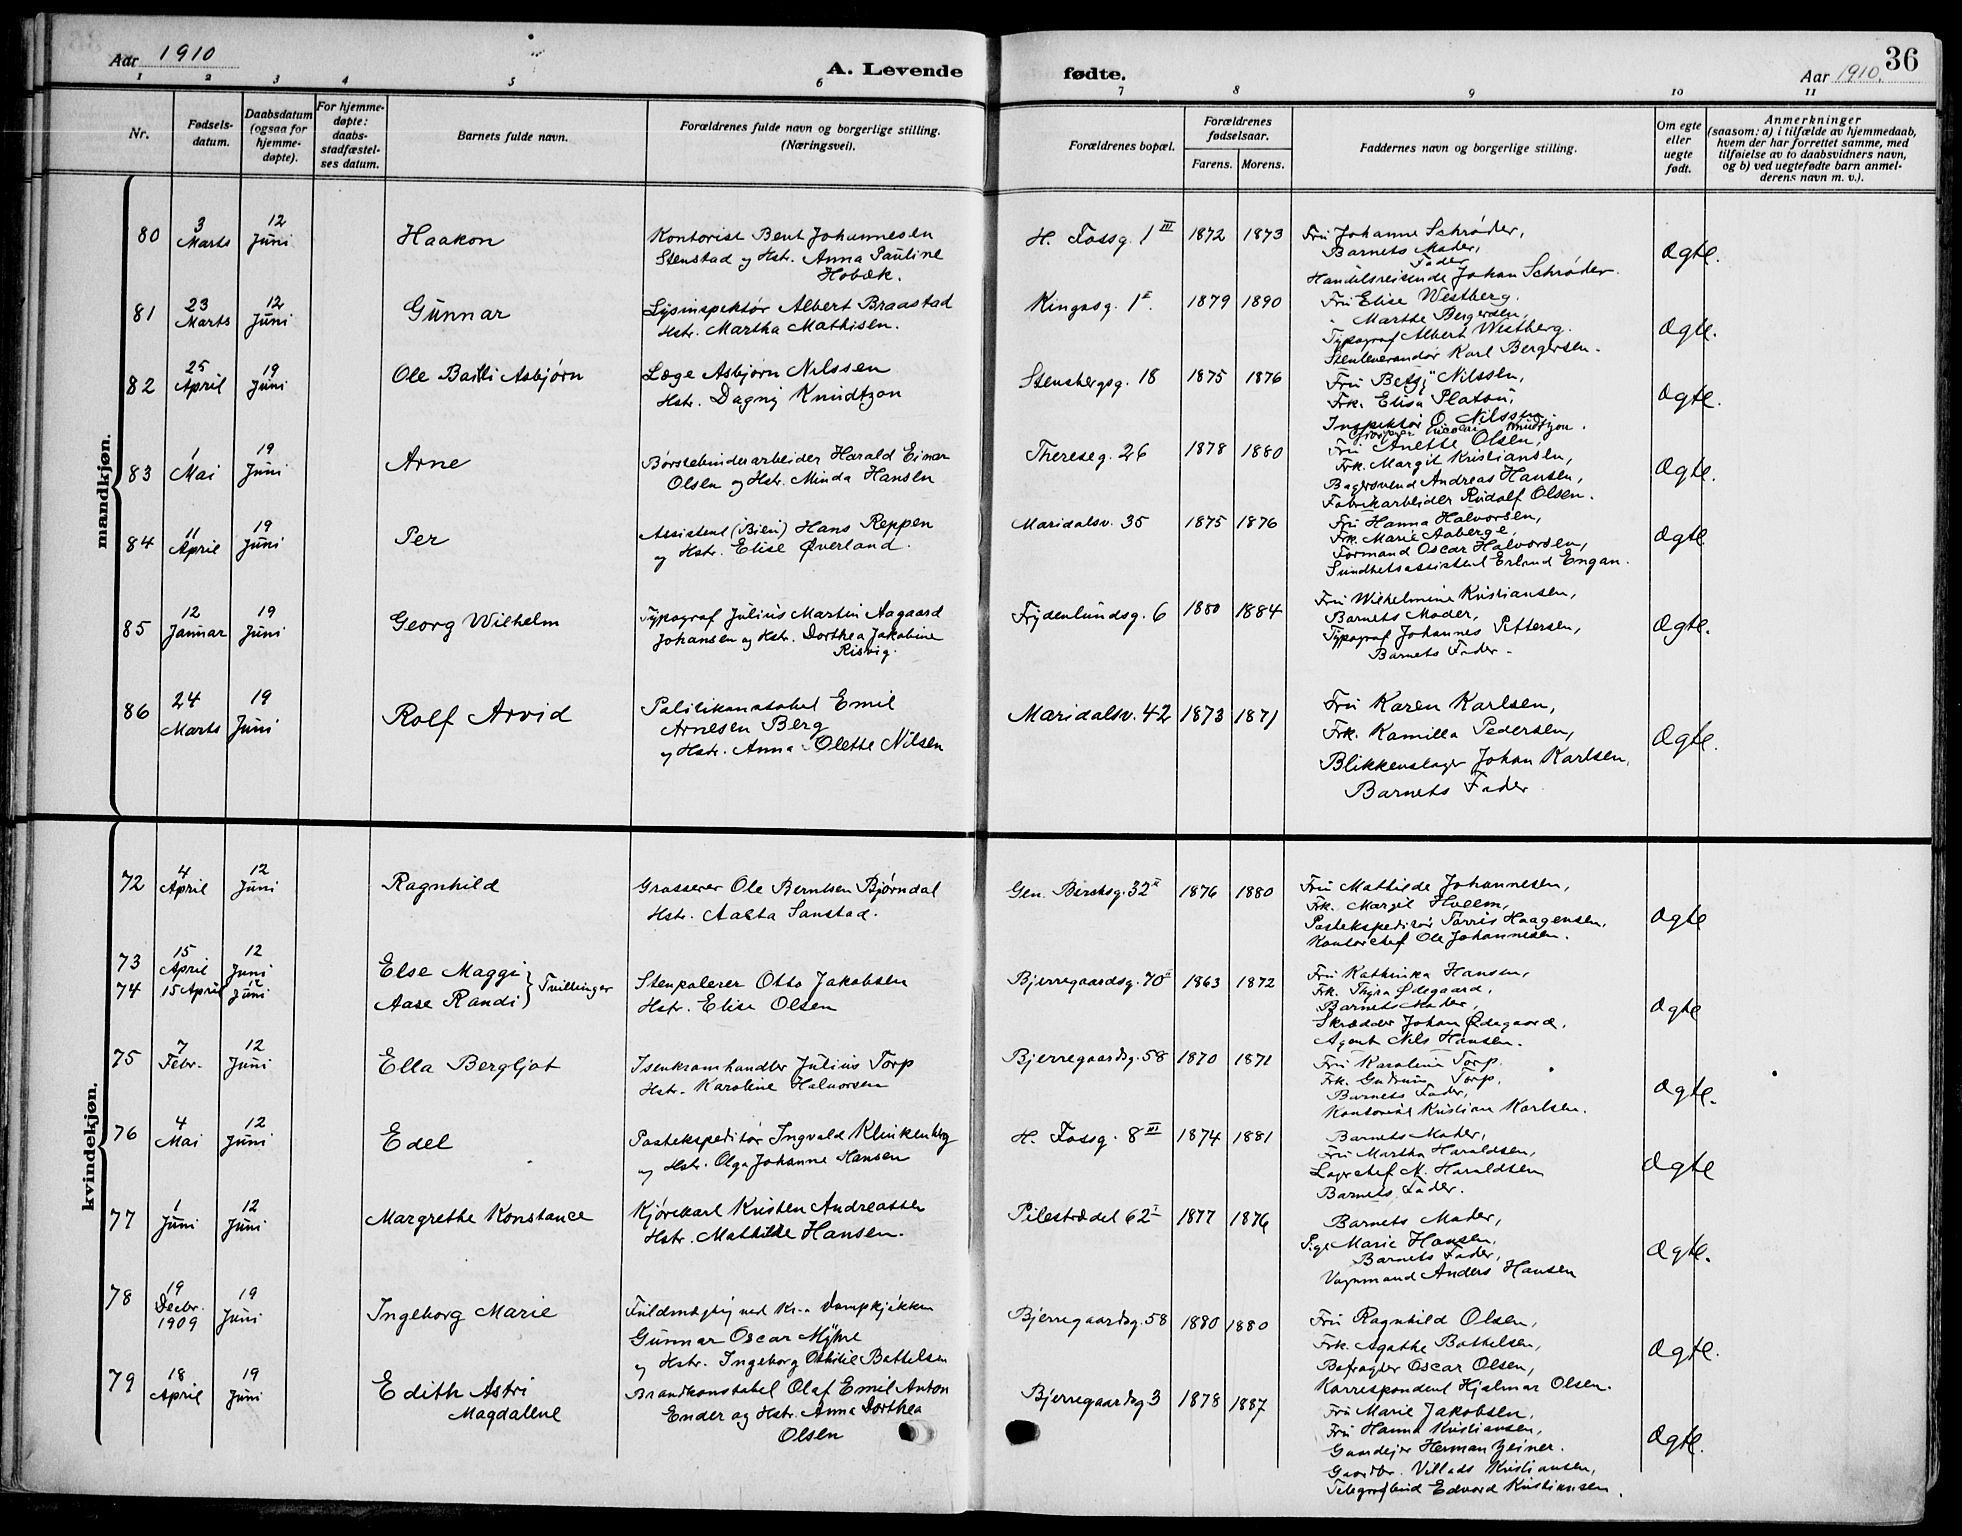 Aar 1910
A. Levende
fødte.
Aar 1910.
36
1 2 3 4 5 6 7 8 9 10 11
Nr.
Fødsels-
datum.
Daabsdatum
(ogsaa for
hjemme-
døpte).
For hjemme-
døpte:
daabs-
stadfæstel-
ses datum.
Barnets fulde navn.
Forældrenes fulde navn og borgerlige stilling.
(Næringsvei).
Forældrenes bopæl.
Forældrenes
fødselsaar.
Farens. Morens.
Faddernes navn og borgerlige stilling.
Om egte
eller
uegte
født.
Anmerkninger
(saasom: a) i tilfælde av hjemmedaab,
hvem der har forrettet samme, med
tilføielse av to daabsvidners navn,
og b) ved uegtefødte barn anmel-
derens navn m. v.).
mandkjøn.
80
3 Marts
12 Juni
Haakon
Kontorist Bent Johannesen
Stenstad og Hstr. Anna Pauline
Hobæk.
H. Fossg. 1 III
1872 1873
Fru Johanne Schrøder,
Barnets Moder,
Fader
Handelsreisende Johan Schrøder.
Ægte.
81
23 Marts
12 Juni
Gunnar
Lysinspektør Albert Braastad
Hstr. Martha Mathisen.
Kingosg. 1
1879 1890
Fru Elise Westberg.
Marthe Bergersen,
Typograf Albert Westberg.
Stenleverandør Karl Bergersen.
Ægte.
82
25 April
19 Juni
Ole Asbjørn
Læge Asbjørn Nilssen
Hstr. Dagny Knudtzon
Stensbergsg. 18
1875 1876
Fru Betzy Nilssen,
Frk. Elisa Platou,
Inspektør O. Nilssen,
Knudtzon.
Ægte.
83
1 Mai
19 Juni
Arne
Børstebinderarbeider Harald Einar
Olsen og Hstr. Minda Hansen
Thereseg. 26
1878 1880
Fru Anette Olsen,
Frk. Margit Kristiansen,
Bagersvend Andreas Hansen,
Fabrikarbeider Rudolf Olsen.
Ægte.
84
11 April
19 Juni
Per
Assistent (Bien) Hans Reppen
og Hstr. Elise Øverland.
Maridalsv. 35
1875 1876
Fru Hanna Halvorsen,
Frk. Marie Aaberge,
Formand Oscar Halvorsen,
Sundhetsassistent Erland Engan.
Ægte
85
12 Januar
19 Juni
Georg Wilhelm
Typograf Julius Martin Aagaard
Johansen og Hstr. Dorthea Jakobine
Risvig.
Frydenlundsg. 6
1880 1884
Fru Wilhelmine Kristiansen,
Barnets Moder,
Typograf Johannes Pettersen,
Barnets Fader.
Ægte.
86
24 Marts
19 Juni
Rolf Arvid
Politikonstabel Emil
Arnesen Berg
og Hstr. Anna Olette Nilsen
Maridalsv. 42
1873 1871
Fru Karen Karlsen,
Frk. Kamilla Pedersen,
Blikkenslager Johan Karlsen,
Barnets Fader
Ægte.
kvindekjøn.
72
4 April
12 Juni
Ragnhild
Grosserer Ole Berntsen Bjørndal
Hstr. Aasta Sanstad.
Gen. Birchsg. 32 II
1876 1880
Fru Mathilde Johannesen,
Frk. Margit Hveem,
Postekspeditør Torris Haagensen,
Kontorchef Ole Johannesen.
Ægte
73
15 April
12 Juni
Else Maggi
74
15 April
12 Juni
Aase Randi
Tvillinger
Stenpolerer Otto Jakobsen
Hstr. Elise Olsen
Bjerregaardsg. 70 II
1863 1872
Fru Kathinka Hansen,
Frk. Thyra Ødegaard,
Barnets Moder,
Skrædder Johan Ødegaard,
Agent Nils Hansen.
Ægte
75
7 Febr.
12 Juni
Ella Bergljot
Isenkramhandler Julius Torp
Hstr. Karoline Halvorsen
Bjerregaardsg. 58
1870 1871
Fru Karoline Torp.
Frk. Gudrun Torp,
Barnets Fader,
Kontorist Kristian Karlsen.
Ægte.
76
4 Mai
12 Juni
Edel
Postekspeditør Ingvald Klinkenberg
og Hstr. Olga Johanne Hansen
H. Fossg. 8 III
1874 1881
Barnets Moder,
Fru Martha Haraldsen,
Lagerchef M. Haraldsen
Barnets Fader.
Ægte
77
1 Juni
12 Juni
Margrethe Konstance
Kjørekarl Kristen Andreassen
Hstr. Mathilde Hansen.
Pilestrædet 62 I
1877 1876
Barnets Moder,
Pige Marie Hansen,
Barnets Fader,
Vognmand Anders Hansen
Ægte.
78
19 Decbr. 1909
19 Juni
Ingeborg Marie
Fuldmægtig ved Kr.a Dampkjøkken
Gunnar Oscar Myhre
og Hstr. Ingeborg Othilie Bottelsen
Bjerregaardsg. 58
1880 1880
Fru Ragnhild Olsen,
Frk. Agathe Bottelsen,
Befragter Oscar Olsen,
Korrespondent Hjalmar Olsen.
Ægte.
79
18 April
19 Juni
Edith Astri
Magdalene
Brandkonstabel Olaf Emil Anton
Ender og Hstr. Anna Dorthea
Olsen
Bjerregaardsg 3
1878 1887
Fru Marie Jakobsen,
Fru Hanna Kristiansen,
Gaardejer Herman Zeiner.
Gaardbr. Villads Kristiansen,
Telegrafbud Edvard Kristiansen.
Ægte.